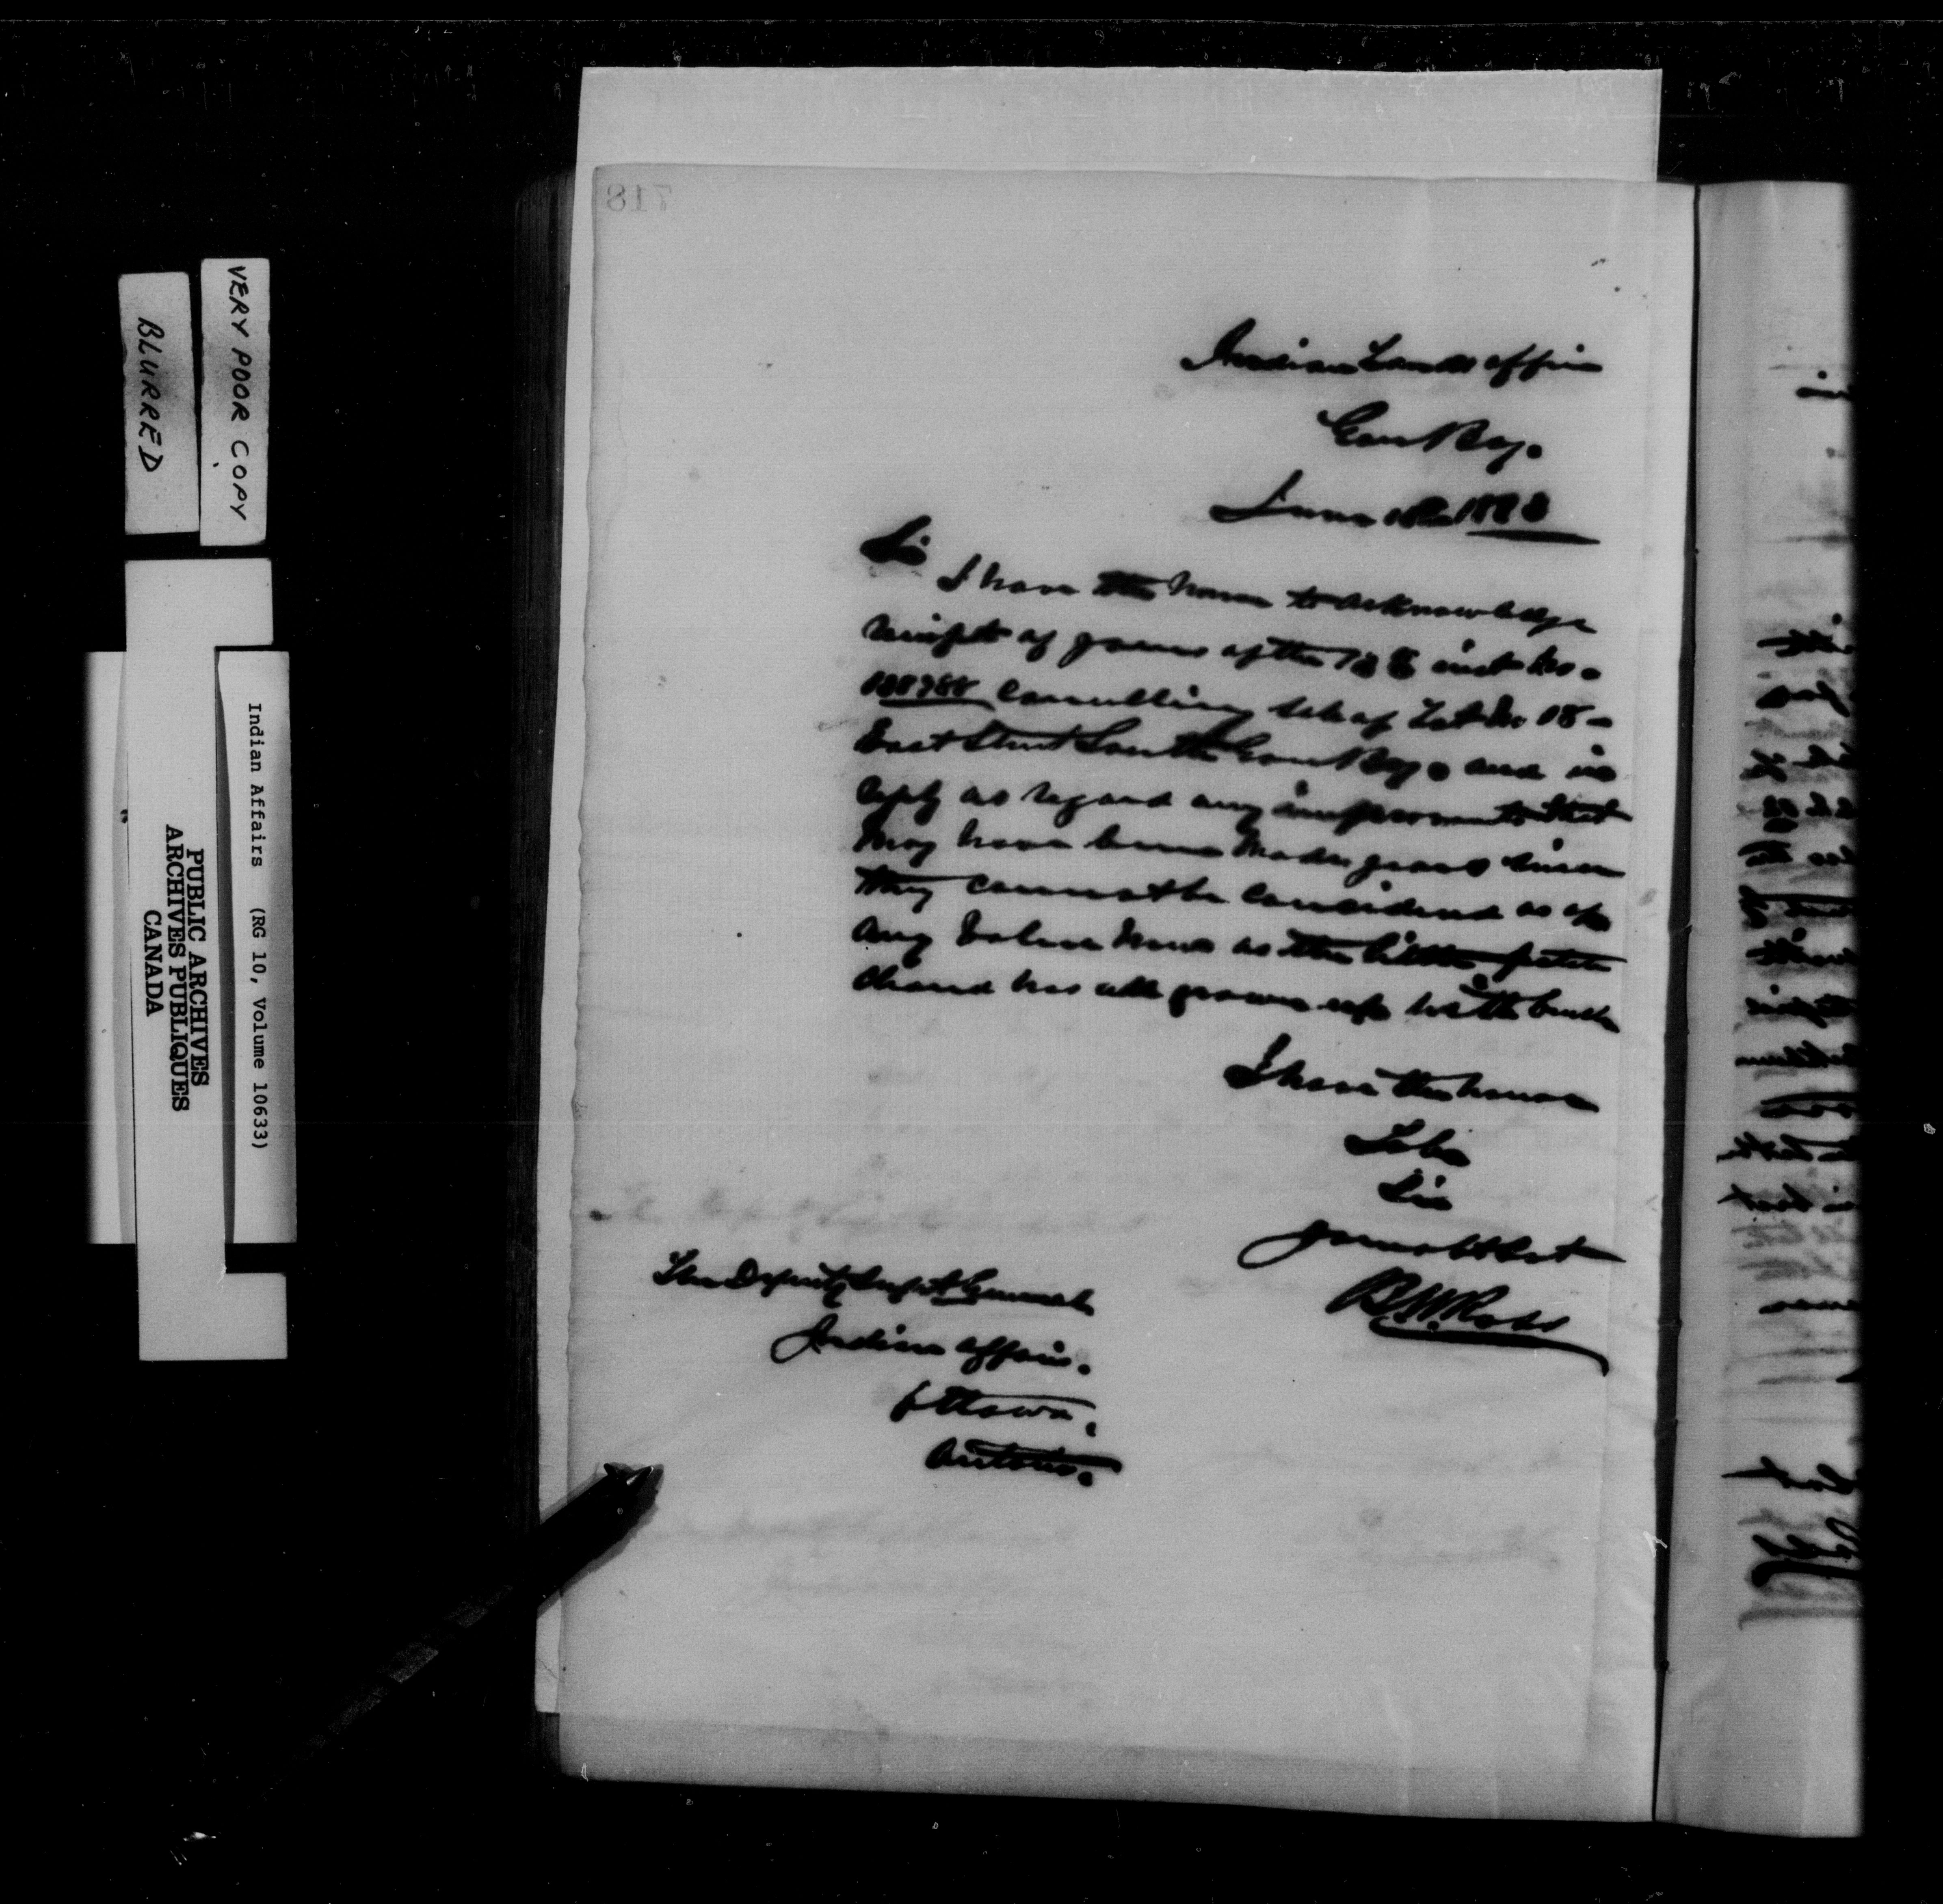 718
Indian Lands office
Gore Bay.
June 1898
Sir
I have the honor to acknowledge
receipt of yours of the 13 inst No.
Cancelling sale of Lot No 18 -
East Street South Gore Bay. and in
reply as regard any improvements that
May have been Made years since
they cannot be considered as of
any Value Now as the little patch
cleared has all grown up with brush
I have the honor
To be
Sir
Your Obt Svt
B.W. Ross
The Deputy Supt General
Indian Affairs.
Ottawa.
Ontario.
VERY POOR COPY
BLURRED
Indian Affairs (RG 10, Volume 10633)
PUBLIC ARCHIVES
ARCHIVES PUBLIQUES
CANADA